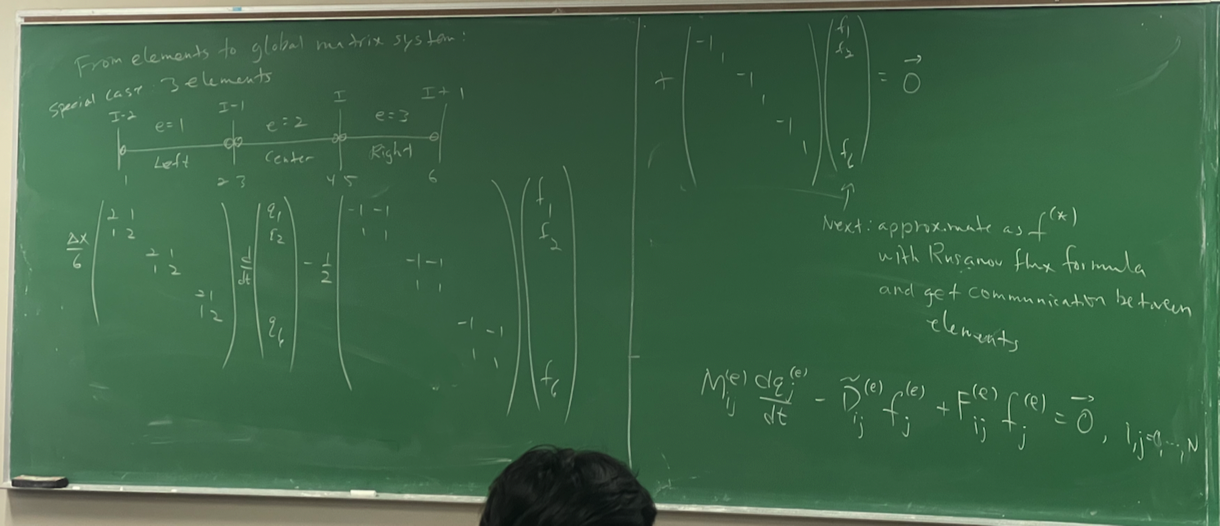 From elements to global matrix system:
special case: 3 elements
I-2 I-1 I I+1
e=1 e=2 e=3
Left Center Right
1 2 3 4 5 6
Δx/6 ( 2 1 ) d/dt ( q1 ) - 1/2 ( -1 -1 ) ( f1 )
1 2 q2 1 1 f2
2 1 -1 -1
1 2 1 1
2 1 -1 -1
1 2 q6 1 1 f6
+ ( -1 ) ( f1 ) = 0⃗
1 f2
-1
1
-1
1 f6
↑
Next: approximate as f^(*)
with Rusanov flux formula
and get communication between
elements
M_ij^(e) dq_j^(e)/dt - D̃_ij^(e) f_j^(e) + F_ij^(e) f_j^(e) = 0⃗, i,j=0,...,N